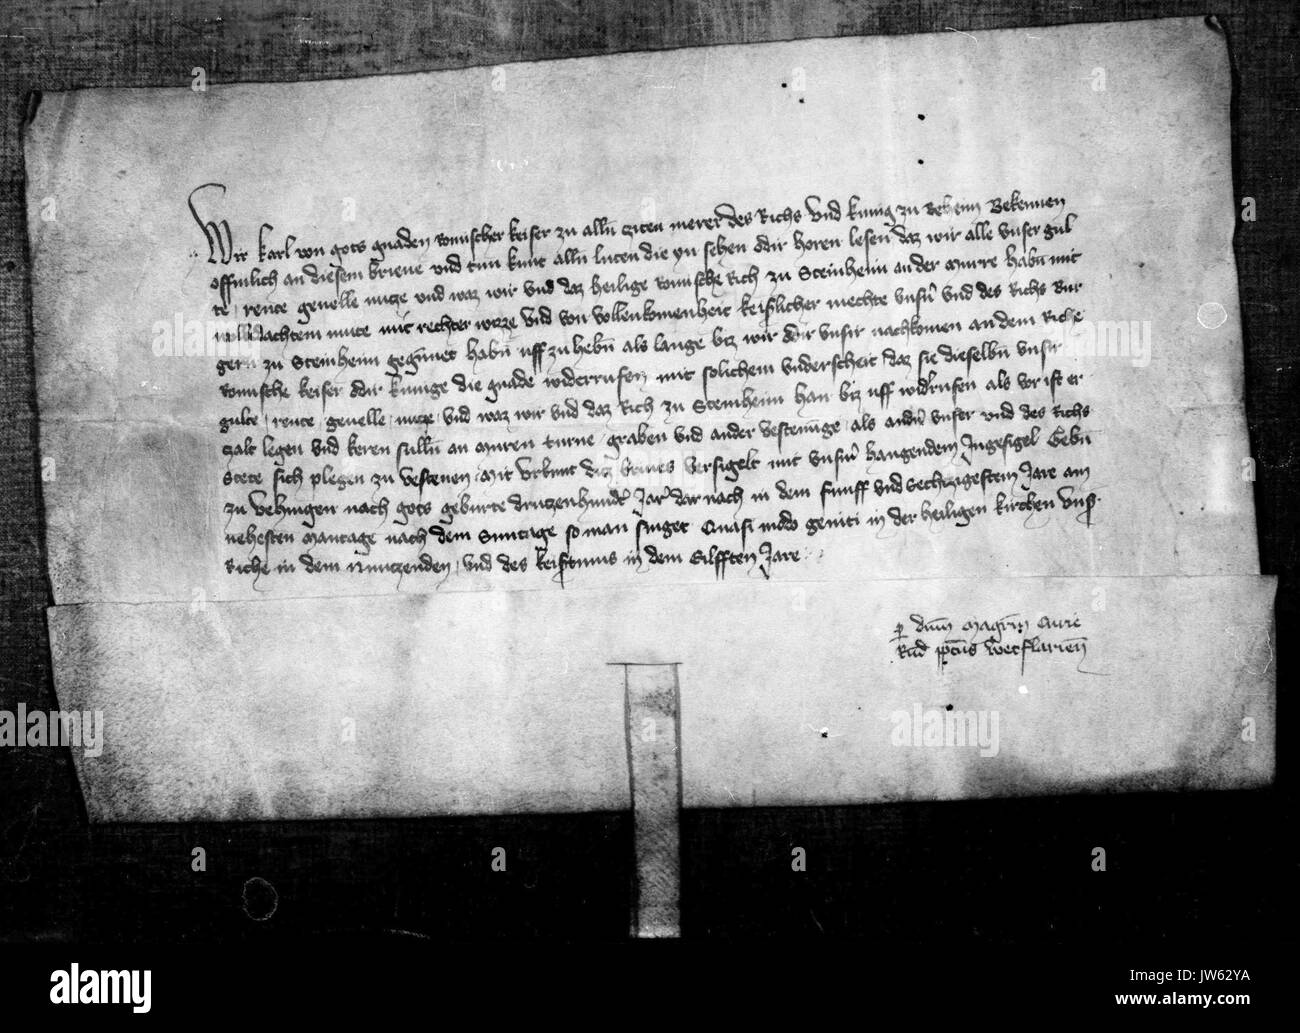 Wir Karl von gots gnaden Romischer keiser zu alln cziten merer des Richs vnd kunig zu Behem Bekennen
offinlich an diesem brieue vnd tun kunt alln luten die yn sehen odir horen lesen daz wir alle vnser gul
te, rente geuelle nutze vnd waz wir vnd daz heilige Romische Rich zu Steinheim an der Murre habn mit
wolbedachtem mute mit rechter wizze vnd von vollenkomenheit keiserlicher mechte vnsern vnd des Richs Bur
gern zu Steinheim gegunnet habn vff zu hebn als lange biz wir odir vnser nachkomen an dem Riche
Romische keiser odir kunige die gnade widerrufen mit solichem vnderscheit daz sie dieselbn vnser
gulte, rente, geuelle, nutze, vnd waz wir vnd daz Rich zu Steinheim han biz vff widerrufen als vor ist er
czalt legen vnd keren sulln an muren turne, graben vnd ander vestenunge, als andir vnser vnd des Richs
Stete sich plegen zu vestenen, Mit vrkunt diz brieues versigelt mit vnserm hangendem Ingesigel Gebn
zu Vehingen nach gots geburte drutzenhundert Jar dar nach in dem funff vnd Sechtzigestem Jare am
nehesten mantage nach dem Suntage so man singet Quasi modo geniti in der heiligen kirchen vnser
Riche in dem Nuntzenden, vnd des keisertums in dem Eilfften Jare
p dnm Magrm Curie
Rud ppitus Wetflarien
alamy
Image ID: JW62YA
www.alamy.com